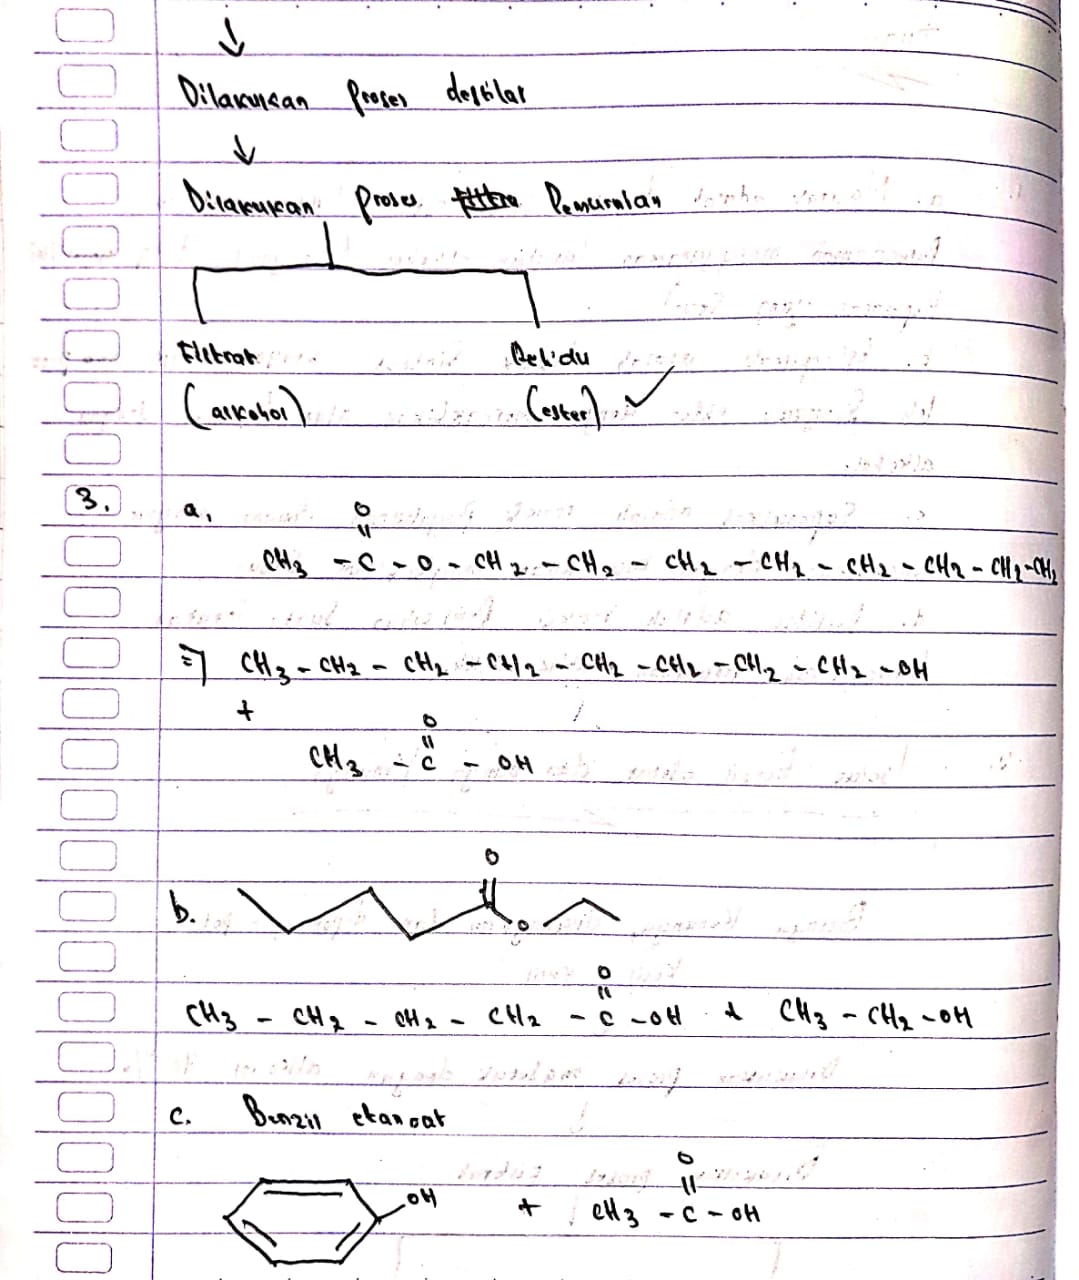 ↓
Dilakukan proses destilat
↓
Dilakukan proses Pemurnian
Filtrat Residu
(alkohol) (ester) ✓
3. a,
O
||
CH3 - C - O - CH2 - CH2 - CH2 - CH2 - CH2 - CH2 - CH2 - CH2
=> CH3 - CH2 - CH2 - CH2 - CH2 - CH2 - CH2 - CH2 - OH
+
O
||
CH3 - C - OH
b.
O
O
O
||
CH3 - CH2 - CH2 - CH2 - C - OH & CH3 - CH2 - OH
c. Benzil etanoat
O
||
OH + CH3 - C - OH